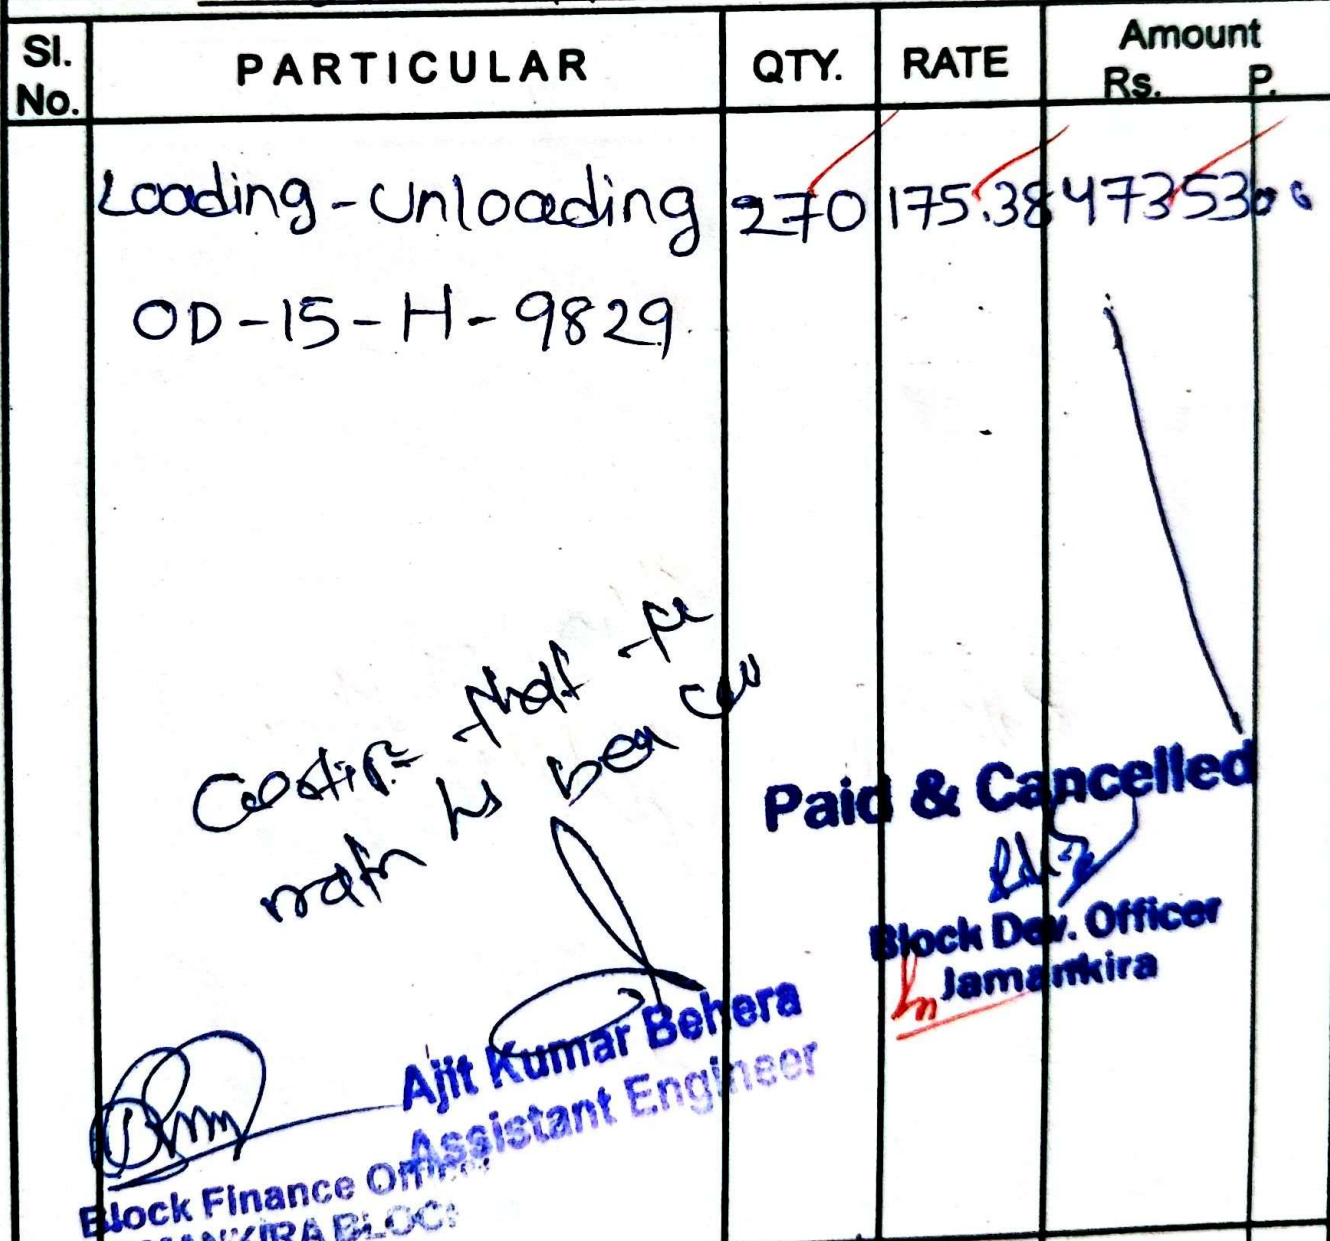 Sl. No. PARTICULAR QTY. RATE Amount Rs. P.
Loading-Unloading 270 175.38 47353 00
OD-15-H-9829
Paid & Cancelled
Block Dev. Officer
Jamankira
Ajit Kumar Behera
Assistant Engineer
Block Finance